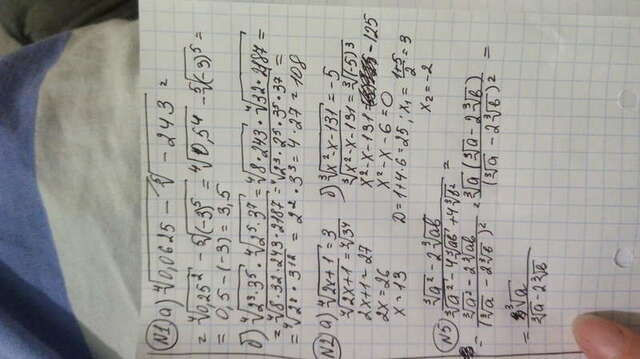 №1 а) ⁴√0,0625 − ⁵√−243 =
= ⁴√0,25² − ⁵√(−3)⁵ = ⁴√0,5⁴ − ⁵√(−3)⁵ =
= 0,5 − (−3) = 3,5
б) ⁴√2³·3⁵ · ⁴√2⁵·3⁷ = ⁴√8·243 · ⁴√32·2187 =
= ⁴√8·32·243·2187 = ⁴√2³·2⁵·3⁵·3⁷ =
= ⁴√2⁸·3¹² = 2²·3³ = 4·27 = 108
№2 а) ⁴√2x+1 = 3 б) ³√x²−x−131 = −5
⁴√2x+1 = ⁴√3⁴ ³√x²−x−131 = ³√(−5)³
2x+1 = 27 x²−x−131 = −125
2x = 26 x²−x−6 = 0
x = 13 D = 1+4·6 = 25; x₁ = (1+5)/2 = 3
x₂ = −2
№5 (³√a² − 2³√ab)/(³√a² − 4³√ab + 4³√b²) =
= (³√a² − 2³√ab)/(³√a − 2³√b)² = ³√a(³√a − 2³√b)/(³√a − 2³√b)² =
= ³√a/(³√a − 2³√b)